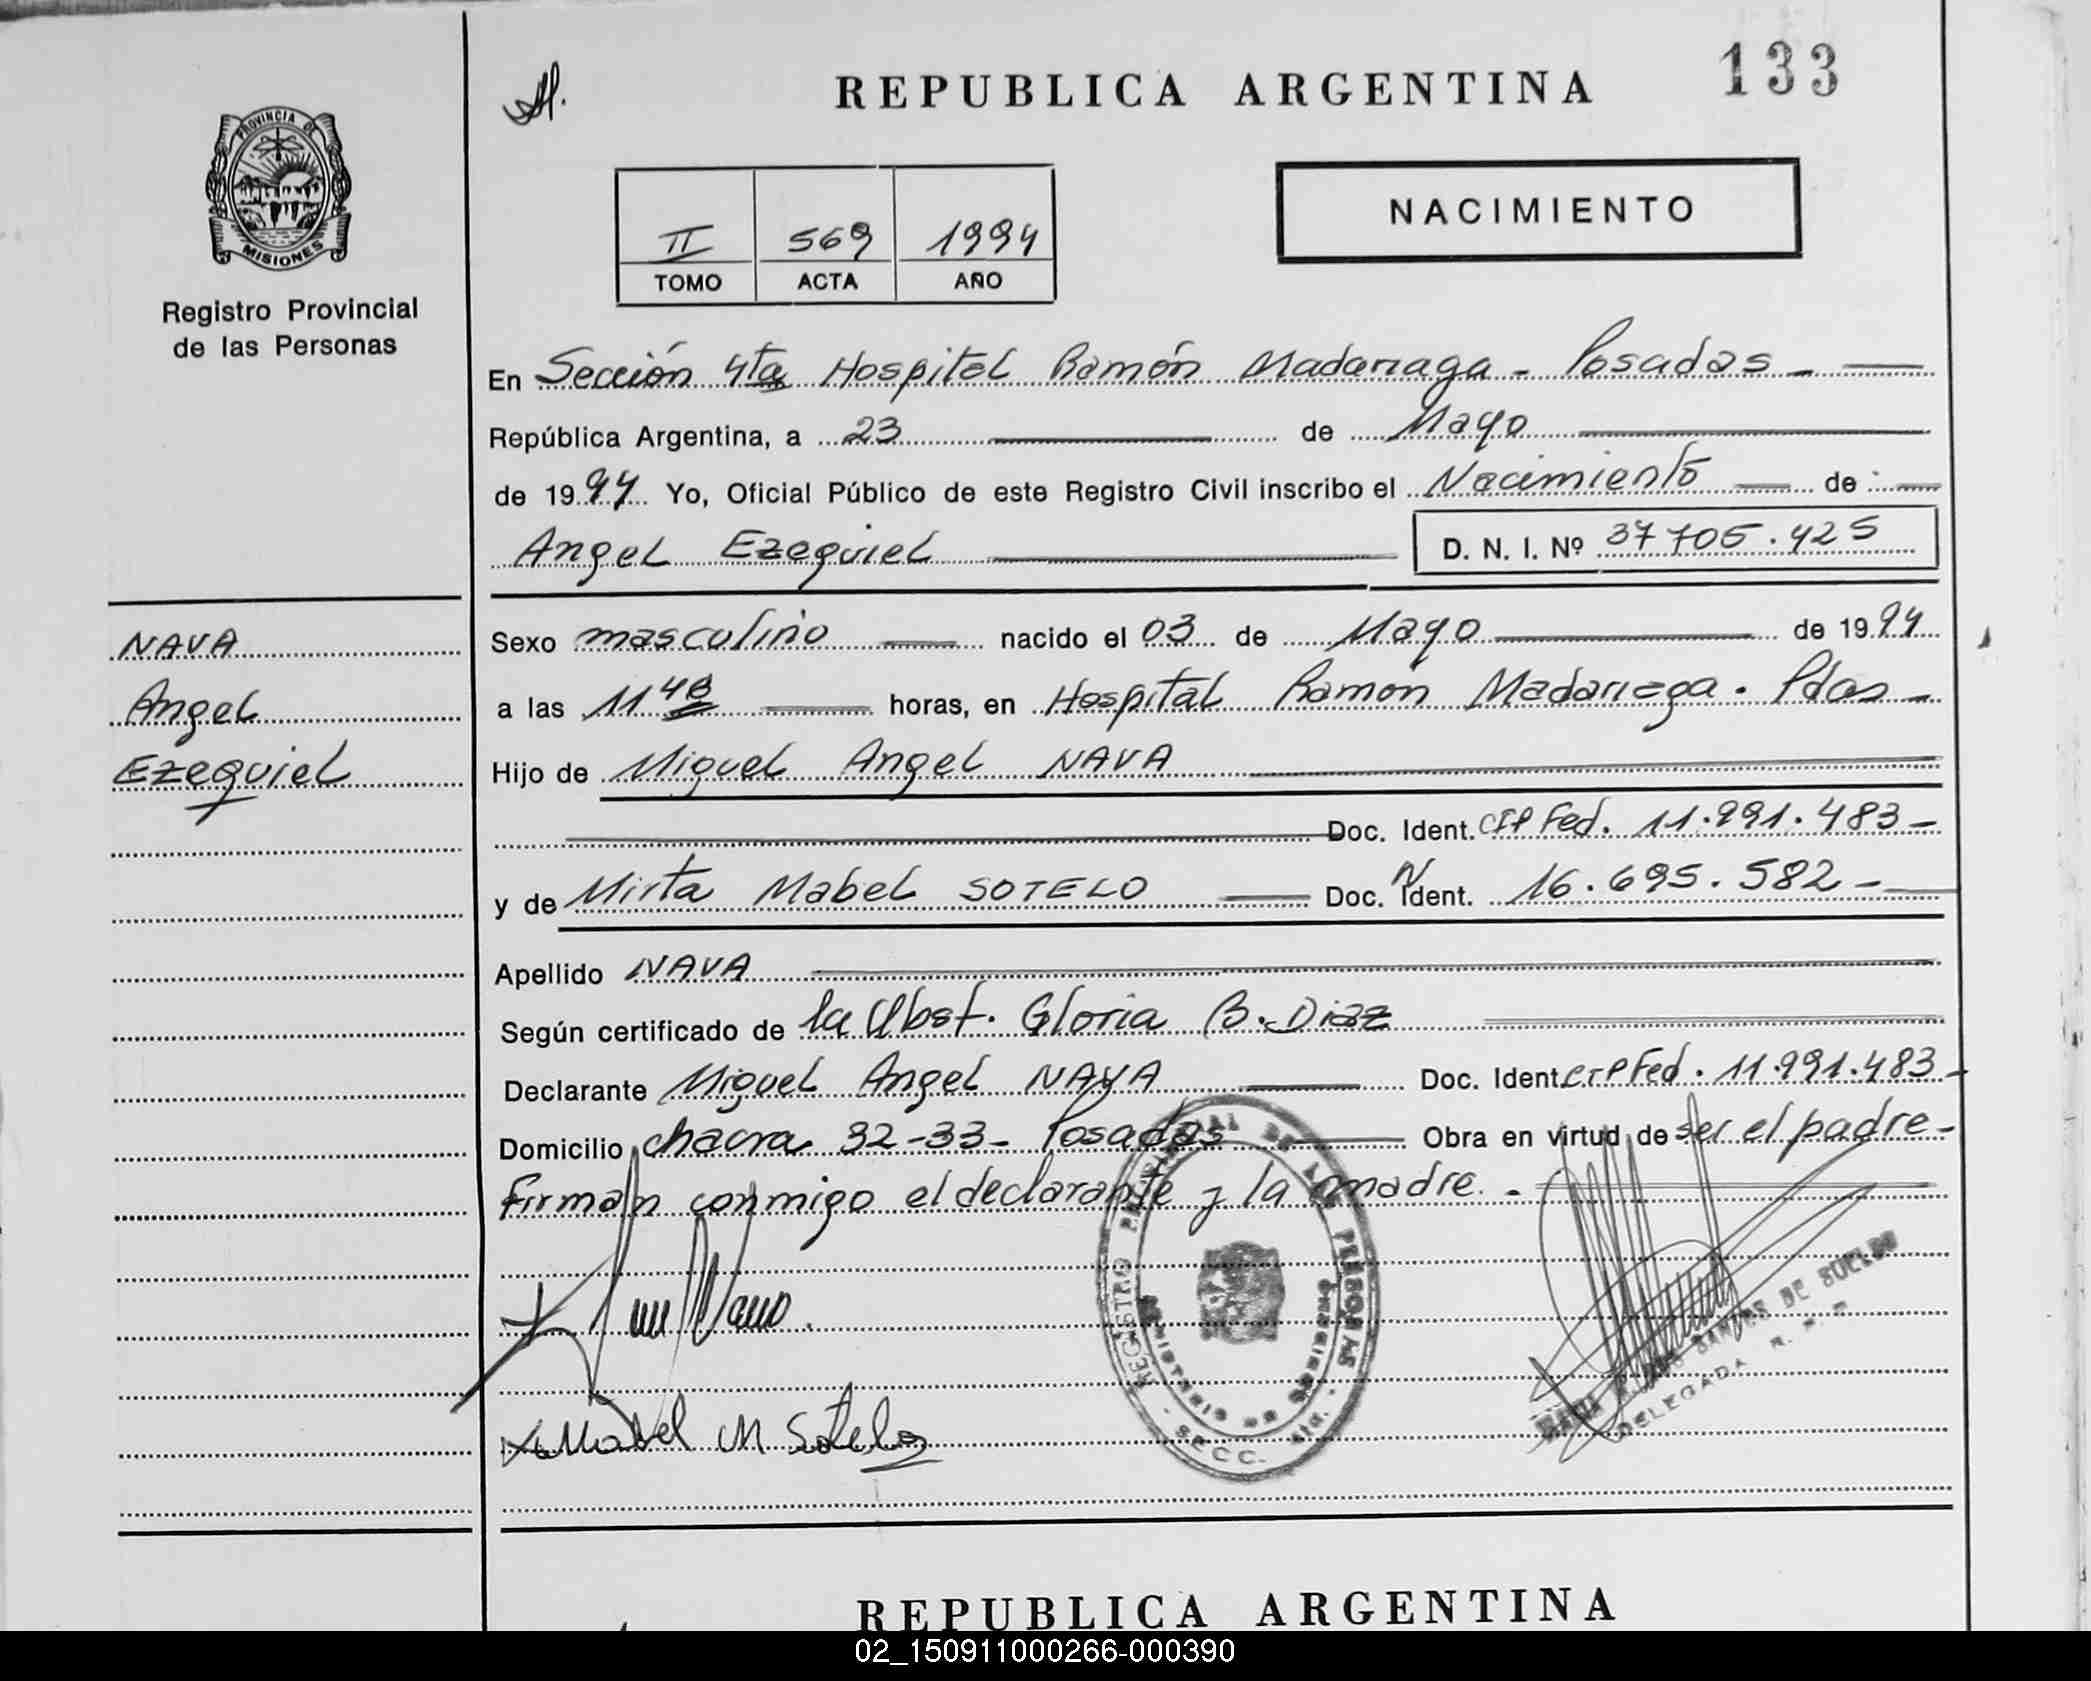 REPUBLICA ARGENTINA
133
PROVINCIA DE
MISIONES
Registro Provincial
de las Personas
II 569 1994
TOMO ACTA AÑO
NACIMIENTO
En Sección 4ta Hospital Ramón Madariaga - Posadas -
República Argentina, a 23 de Mayo
de 1994 Yo, Oficial Público de este Registro Civil inscribo el Nacimiento de
Angel Ezequiel D. N. I. Nº 37705.425
NAVA
Angel
Ezequiel
Sexo masculino nacido el 03 de Mayo de 1994
a las 11 48 horas, en Hospital Ramon Madariaga. Pdas -
Hijo de Miguel Angel NAVA
Doc. Ident. CIP Fed. 11.991.483 -
y de Mirta Mabel SOTELO Doc. N Ident. 16.695.582 -
Apellido NAVA
Según certificado de la Obst. Gloria B. Diaz
Declarante Miguel Angel NAVA Doc. Ident CIP Fed. 11.991.483 -
Domicilio chacra 32-33- Posadas Obra en virtud de ser el padre -
Firman conmigo el declarante y la madre. -
REGISTRO PROVINCIAL DE LAS PERSONAS
MINISTERIO DE GOBIERNO
SECC.
SANTOS DE SUELDO
DELEGADA R. P. P.
Mabel M Sotelo
REPUBLICA ARGENTINA
02_150911000266-000390